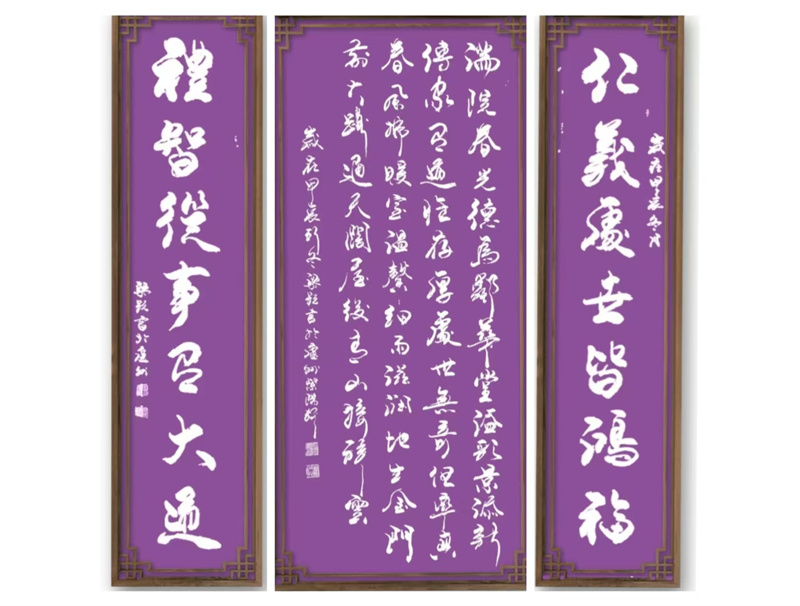 仁義處世皆鴻福
歲在甲辰冬月
滿院春光德為鄰華堂溢彩景添新
傳家有道惟存厚處世無奇但率真
春風拂暖室溫馨細雨滋潤地生金門
前大路通天闊屋後青山接碧雲
歲在甲辰初冬梁書於州
禮智從事有大通
梁書於州